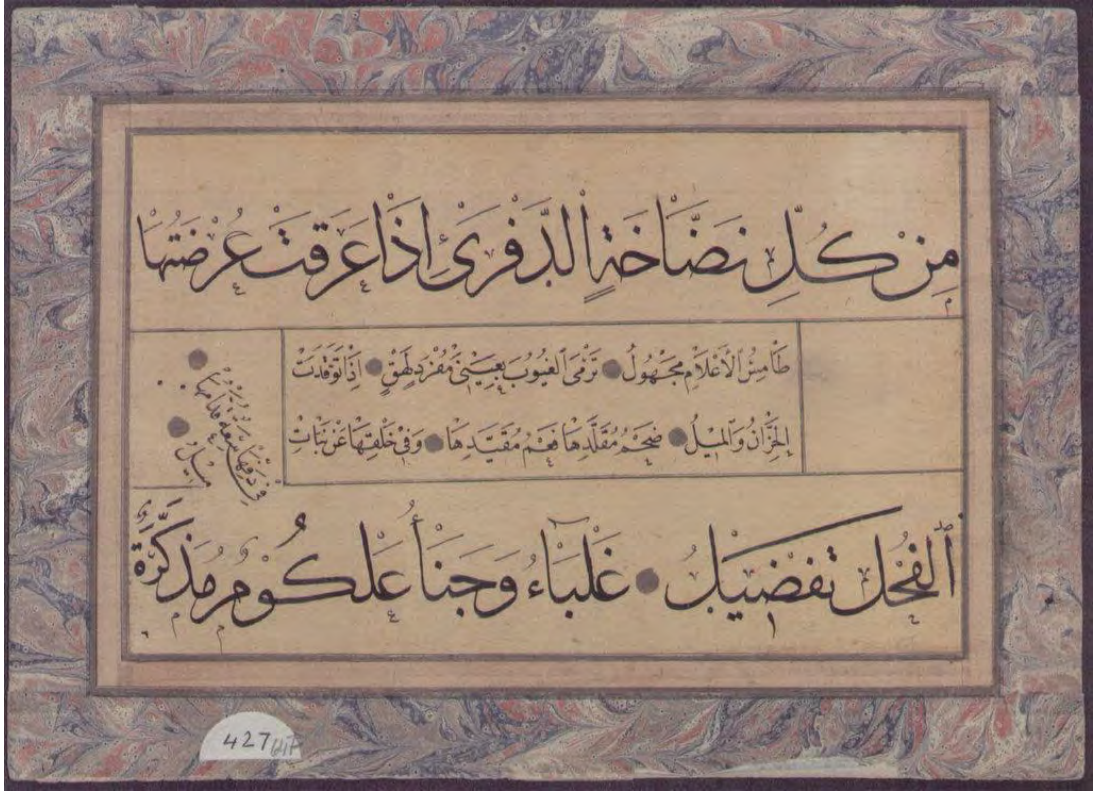 مِنْ كُلِّ نَضَّاخَةٍ الدَّفْرَىْ اِذَا عَرَقَتْ عُرْضَتُهَا
طَامِسُ الْاَعْلَامِ مَجْهُولُ ● تَرْمَى الْغُيُوبَ بِعَيْنَىْ مُفْرَدٍ لَهَقٍ ● اِذَا تَوَقَّدَتْ
الْحِزَّانُ وَالْمِيْلُ ● ضَخْمٌ مُقَلَّدُهَا فَعْمٌ مُقَيَّدُهَا ● وَفِى خَلْقِهَا عَنْ بَنَاتِ
الْفَحْلِ تَفْضِيْلُ ● غَلْبَاءُ وَجَنَأُ عَلْكُوْمٌ مُذَكَّرَةٌ
فِى دَفِّهَا سَعَةٌ قُدَّامَهَا ●
مِيْلُ ●
427